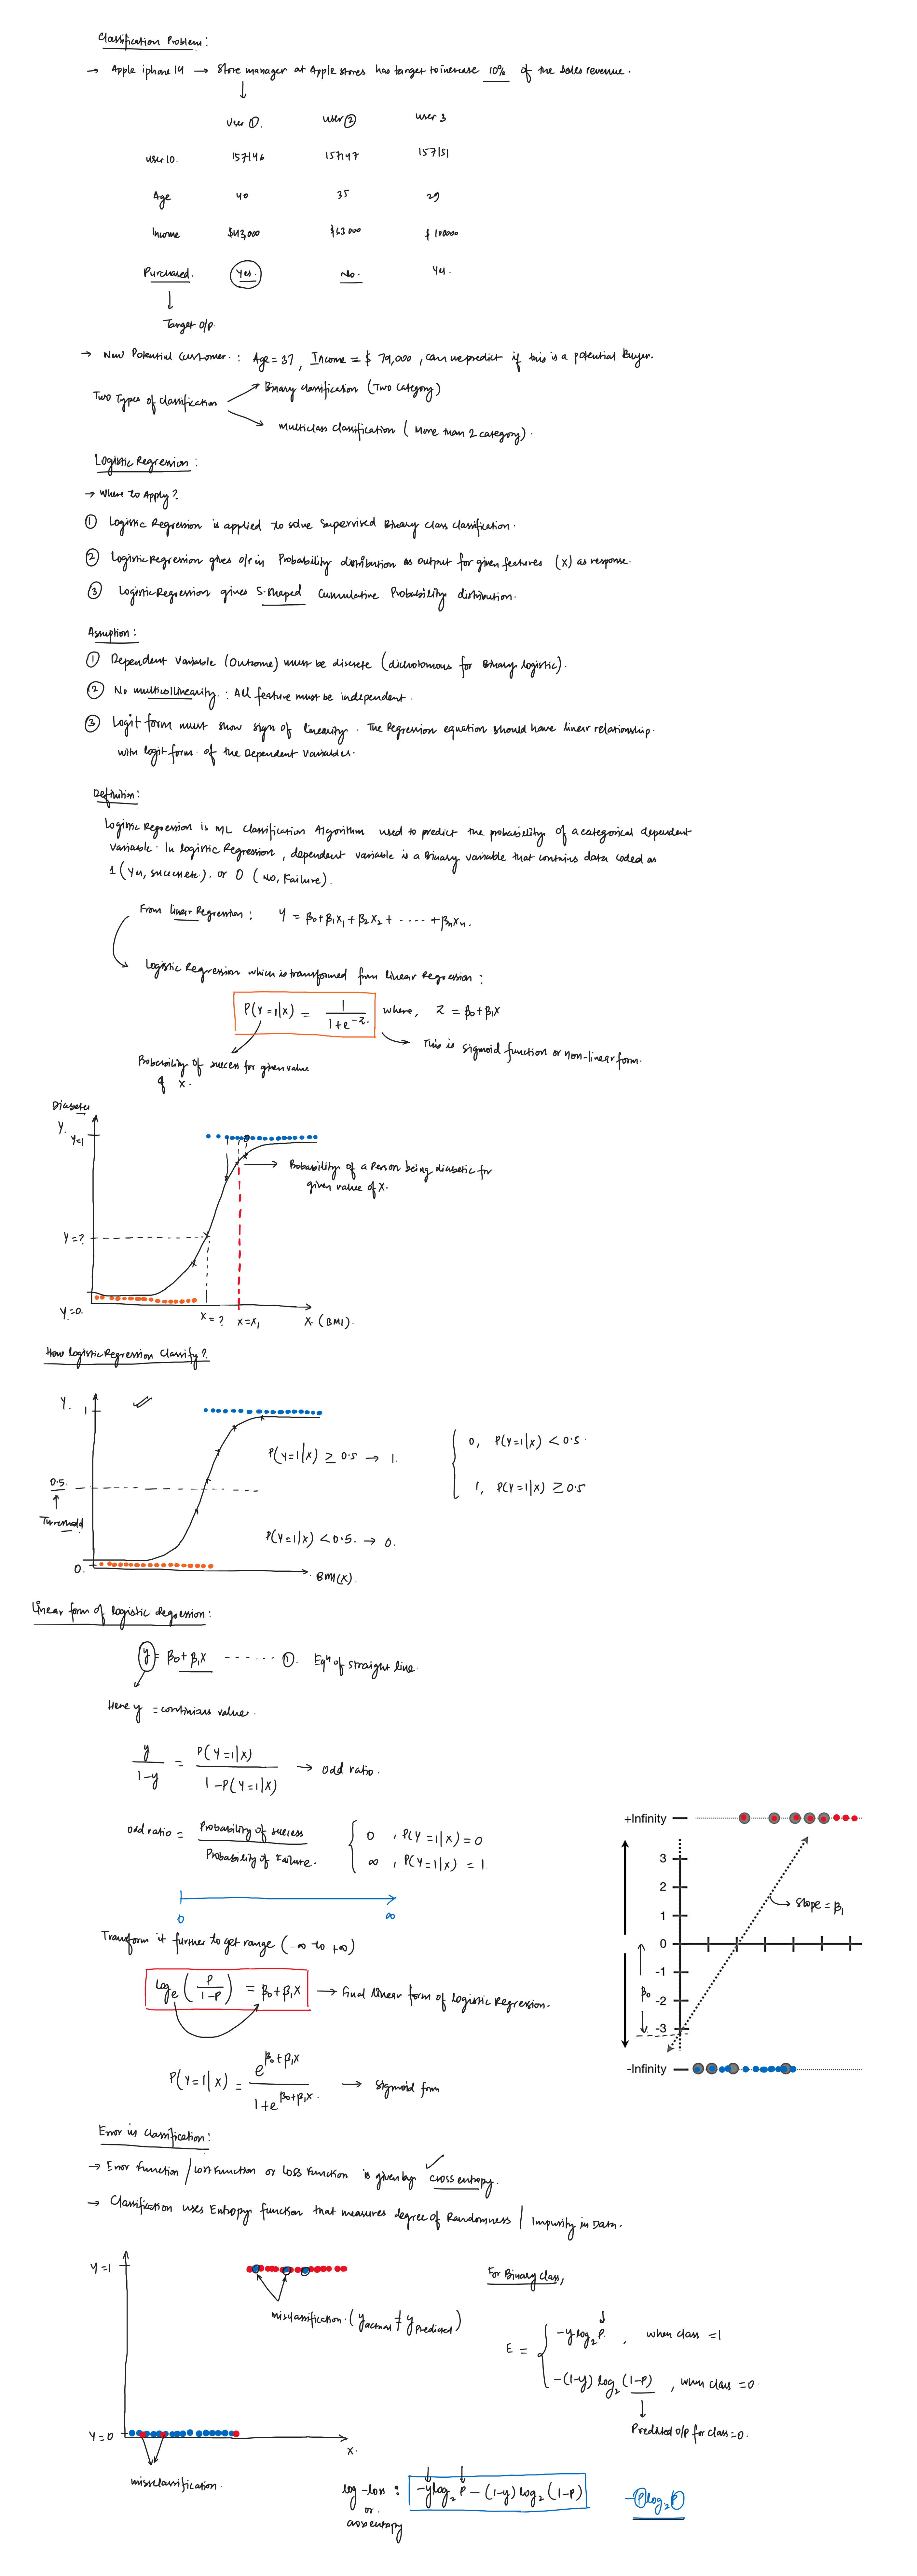 Classification Problem:
→ Apple iphone 14 → Store manager at Apple stores has target to increase 10% of the sales revenue.
User ①. user ② user 3
user ID. 157146 157147 157151
Age 40 35 29
Income $43,000 $63000 $100000
Purchased. Yes. No. Yes.
Target o/p
→ New Potential Customer. : Age = 37, Income = $79,000, can we predict if this is a potential Buyer.
Binary classification (Two category)
Two Types of classification
multiclass classification (More than 2 category).
Logistic Regression:
→ Where to Apply?
① Logistic Regression is applied to solve supervised Binary class classification.
② Logistic Regression gives o/p in Probability distribution as output for given features (X) as response.
③ Logistic Regression gives S-shaped Cummulative Probability distribution.
Assuption:
① Dependent Variable (Outcome) must be discrete (dichotomous for Binary logistic).
② No multicollinearity. : All feature must be independent.
③ Logit form must show sign of linearity. The Regression equation should have linear relationship.
with logit form of the Dependent Variables.
Definition:
Logistic Regression is ML classification Algorithm used to predict the probability of a categorical dependent
variable. In logistic Regression, dependent variable is a Binary variable that contains data coded as
1 (Yes, success etc.). or 0 (No, Failure).
From linear Regression: Y = β₀+β₁X₁+β₂X₂+ ···· +βₙXₙ.
Logistic Regression which is transformed from linear Regression:
P(Y=1|X) = 1/(1+e^-z) where, Z = β₀+β₁X
This is sigmoid function or non-linear form.
Probability of success for given value
of X.
Diabetes
Y.
Y=1
Probability of a Person being diabetic for
given value of X.
Y=?
Y=0.
X=? X=X₁ X (BMI).
How logistic Regression Classify?
Y.
1
P(Y=1|X) ≥ 0.5 → 1.
0, P(Y=1|X) < 0.5.
1, P(Y=1|X) ≥ 0.5
0.5.
Threshold
P(Y=1|X) < 0.5. → 0.
0.
BMI(X).
Linear form of logistic regression:
y = β₀+β₁X ······ ①. Eqⁿ of straight line.
Here y = continious value.
y/(1-y) = P(Y=1|X)/(1-P(Y=1|X)) → odd ratio.
odd ratio = Probability of success/Probability of Failure.
0, P(Y=1|X)=0
∞, P(Y=1|X)=1.
0 ∞
Transform it further to get range (-∞ to +∞)
logₑ(P/(1-P)) = β₀+β₁X → Final linear form of logistic Regression.
P(Y=1|X) = e^(β₀+β₁X)/(1+e^(β₀+β₁X)). → sigmoid form
+Infinity
3
2
1
0
-1
-2
-3
-Infinity
slope = β₁
β₀
Error in Classification:
→ Error Function / Cost Function or Loss Function is given by cross entropy.
→ Classification uses Entropy function that measures degree of Randomness / Impurity in Data.
Y=1
misclassification. (y actual ≠ y predicted)
Y=0
X.
missclassification.
For Binary class,
E =
-y log₂ P. , when class = 1
-(1-y) log₂ (1-P) , when class = 0.
Predicted o/p for class=0.
log-loss : -y log₂ P - (1-y) log₂ (1-P)
or.
cross entropy
-P log₂ P